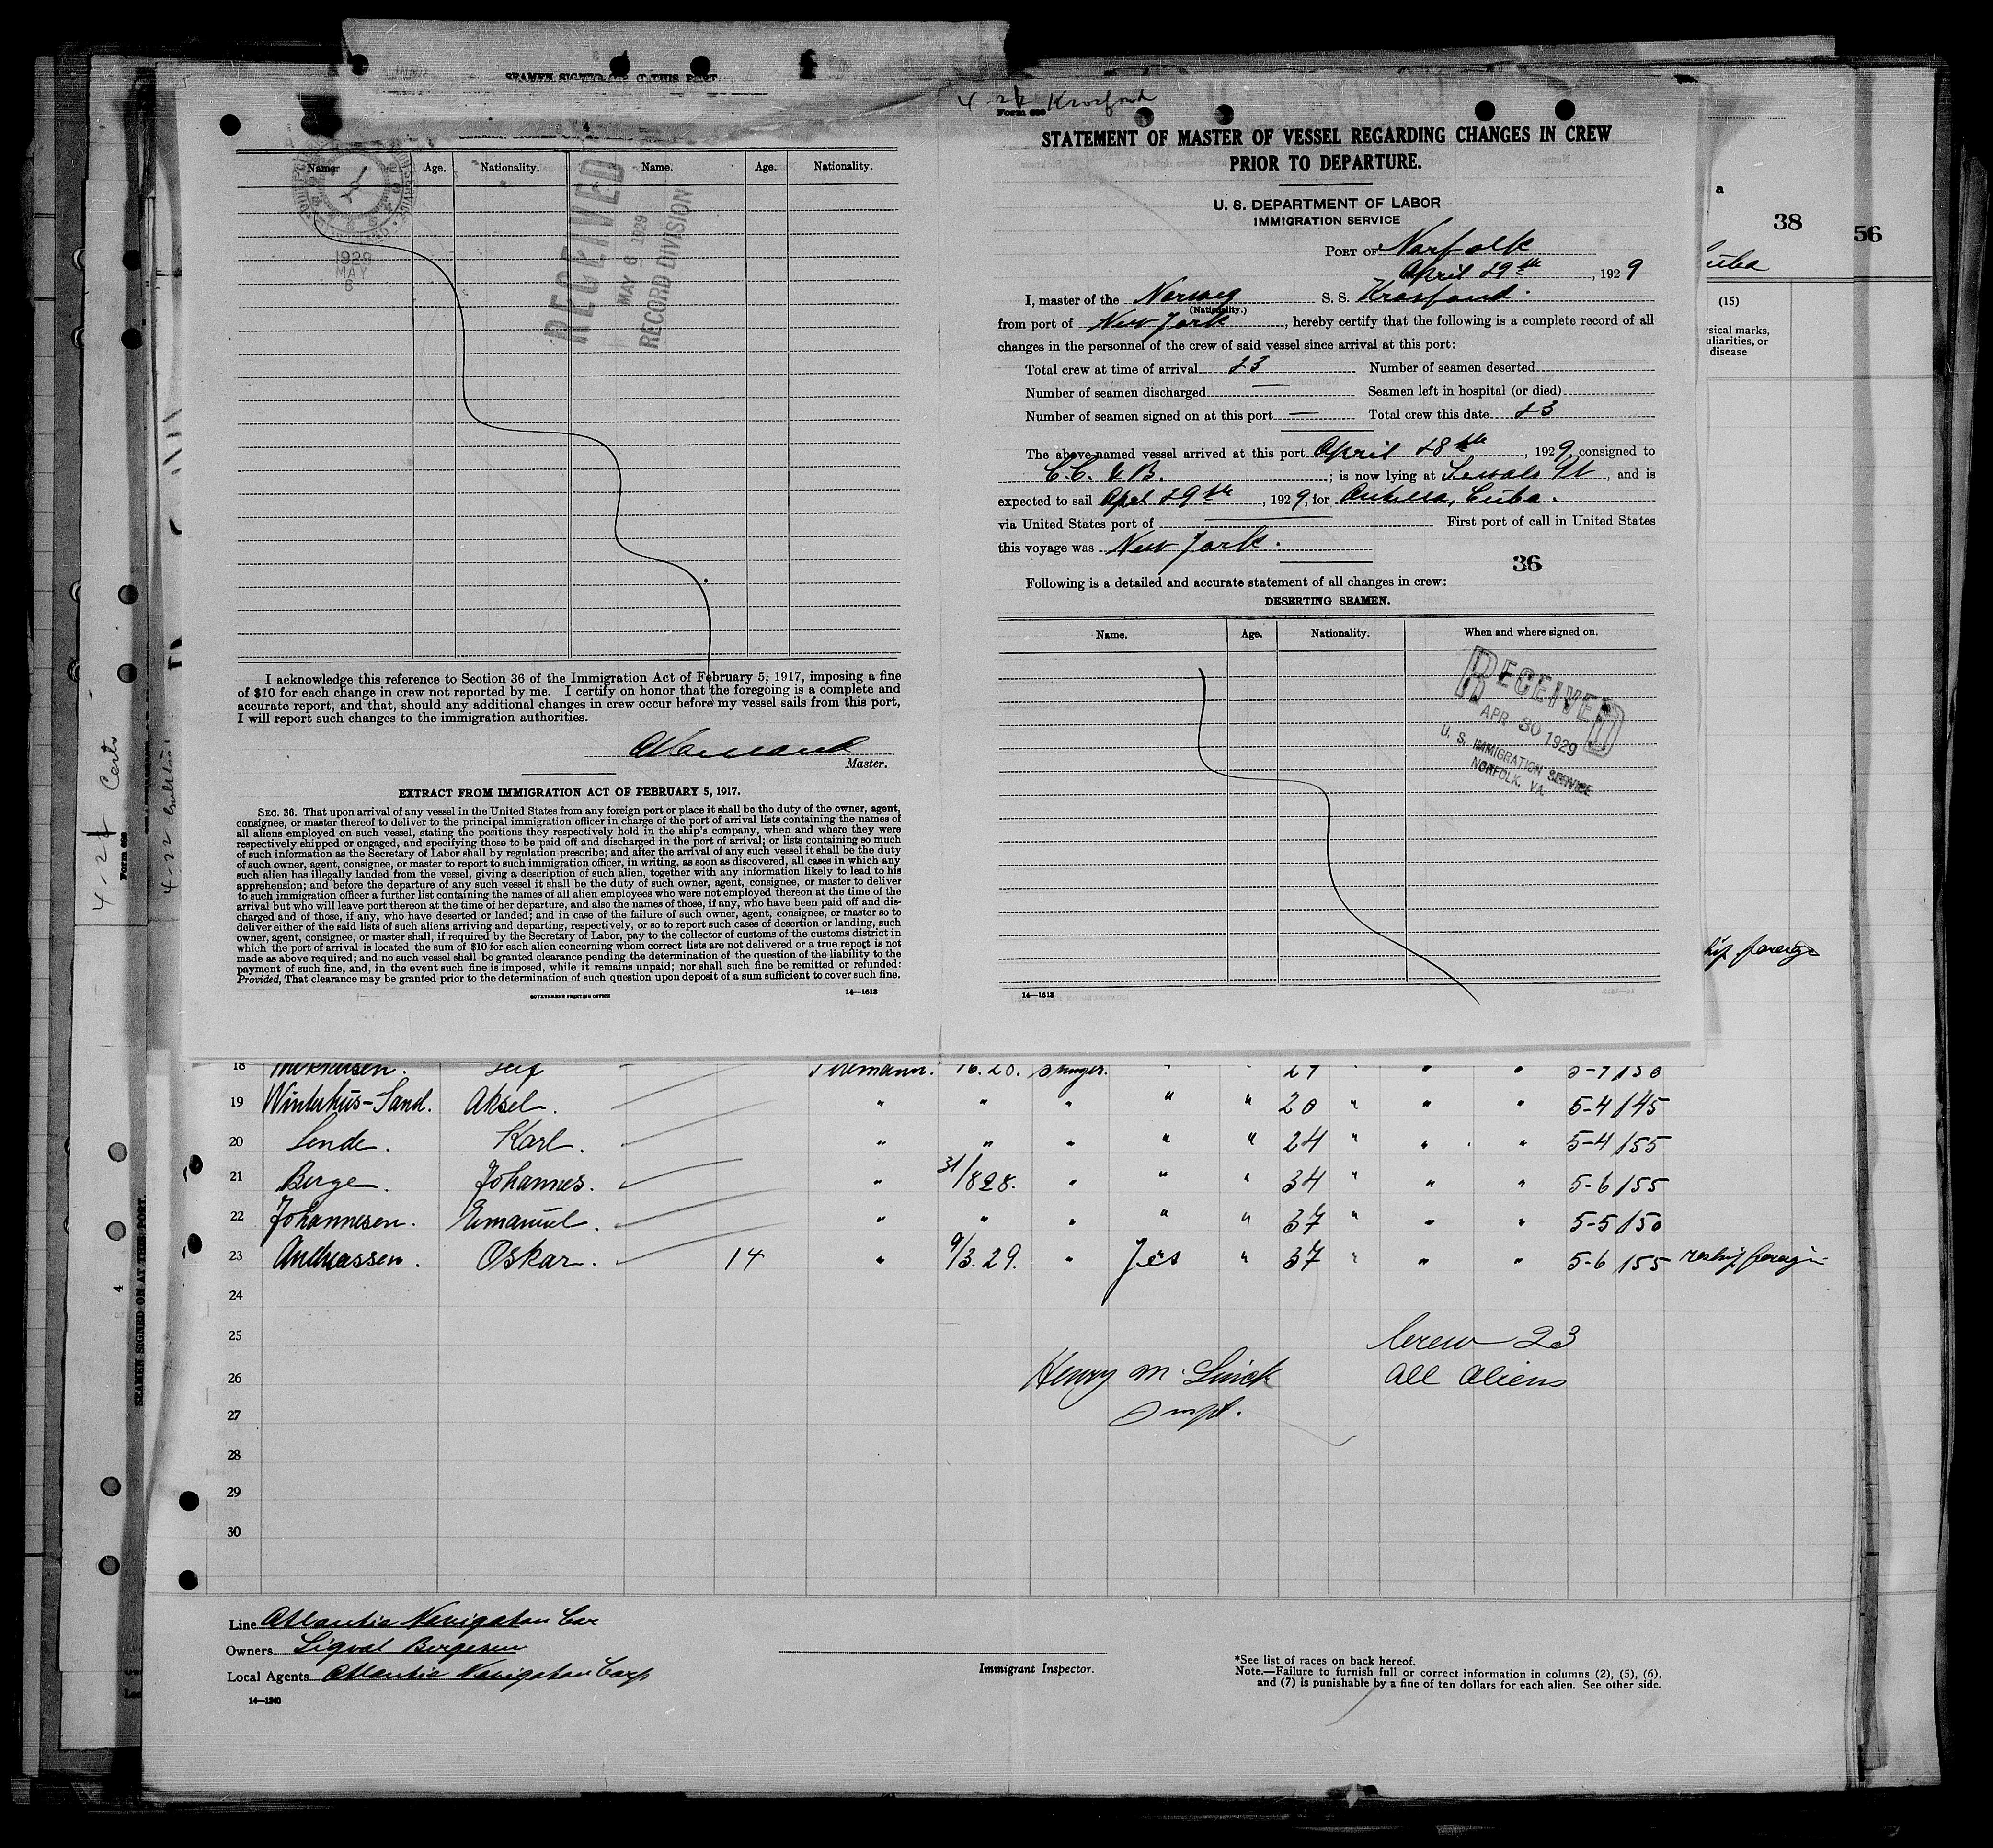 SEAMEN SIGNED ON AT THIS PORT
4
Name. Age. Nationality. Name. Age. Nationality.
1929
MAY
6
RECEIVED
MAY 6 1929
RECORD DIVISION
I acknowledge this reference to Section 36 of the Immigration Act of February 5, 1917, imposing a fine
of $10 for each change in crew not reported by me. I certify on honor that the foregoing is a complete and
accurate report, and that, should any additional changes in crew occur before my vessel sails from this port,
I will report such changes to the immigration authorities.
Master.
EXTRACT FROM IMMIGRATION ACT OF FEBRUARY 5, 1917.
SEC. 36. That upon arrival of any vessel in the United States from any foreign port or place it shall be the duty of the owner, agent,
consignee, or master thereof to deliver to the principal immigration officer in charge of the port of arrival lists containing the names of
all aliens employed on such vessel, stating the positions they respectively hold in the ship's company, when and where they were
respectively shipped or engaged, and specifying those to be paid off and discharged in the port of arrival; or lists containing so much
of such information as the Secretary of Labor shall by regulation prescribe; and after the arrival of any such vessel it shall be the duty
of such owner, agent, consignee, or master to report to such immigration officer, in writing, as soon as discovered, all cases in which any
such alien has illegally landed from the vessel, giving a description of such alien, together with any information likely to lead to his
apprehension; and before the departure of any such vessel it shall be the duty of such owner, agent, consignee, or master to deliver
to such immigration officer a further list containing the names of all alien employees who were not employed thereon at the time of the
arrival but who will leave port thereon at the time of her departure, and also the names of those, if any, who have been paid off and dis-
charged and of those, if any, who have deserted or landed; and in case of the failure of such owner, agent, consignee, or master so to
deliver either of the said lists of such aliens arriving and departing, respectively, or so to report such cases of desertion or landing, such
owner, agent, consignee, or master shall, if required by the Secretary of Labor, pay to the collector of customs of the customs district in
which the port of arrival is located the sum of $10 for each alien concerning whom correct lists are not delivered or a true report is not
made as above required; and no such vessel shall be granted clearance pending the determination of the question of the liability to the
payment of such fine, and, in the event such fine is imposed, while it remains unpaid; nor shall such fine be remitted or refunded:
Provided, That clearance may be granted prior to the determination of such question upon deposit of a sum sufficient to cover such fine.
GOVERNMENT PRINTING OFFICE 14—1613
Krosfond
Form 689
STATEMENT OF MASTER OF VESSEL REGARDING CHANGES IN CREW
PRIOR TO DEPARTURE.
U. S. DEPARTMENT OF LABOR
IMMIGRATION SERVICE
PORT OF Norfolk
April 29th, 1929
I, master of the Norweg S. S. Krosfond.
(Nationality.)
from port of New York, hereby certify that the following is a complete record of all
changes in the personnel of the crew of said vessel since arrival at this port:
Total crew at time of arrival 23 Number of seamen deserted
Number of seamen discharged — Seamen left in hospital (or died)
Number of seamen signed on at this port — Total crew this date 23
The above-named vessel arrived at this port April 28th, 1929, consigned to
C.C. & B. ; is now lying at Sewals Pt, and is
expected to sail April 29th, 1929, for Antilla, Cuba.
via United States port of First port of call in United States
this voyage was New York.
36
Following is a detailed and accurate statement of all changes in crew:
DESERTING SEAMEN.
Name. Age. Nationality. When and where signed on.
RECEIVED
APR 30 1929
U. S. IMMIGRATION SERVICE
NORFOLK, VA.
14—1613
a
38
56
Cuba
(15)
sical marks,
uliarities, or
disease
hip foreign
18 Leif Firemann. 16.20. 27 5-7 150
19 Winterhus-Sand. Aksel. " " " " " 20 " " " 5-4 145
20 Lende. Karl. " " " " " 24 " " " 5-4 155
21 Berge. Johannes. " 31/8 28. " " " 34 " " " 5-6 155
22 Johannesen. Emanuel. " " " " " 37 " " " 5-5 150
23 Andreassen. Oskar. 14 " 9/3.29. " Yes " 37 " " " 5-6 155 reship foreign
24
25 Crew 23
26 Henry M. Linck All Aliens
27 Insp.
28
29
30
Line Atlantic Navigation Cor
Owners Sigval Bergesen
Local Agents Atlantic Navigation Corp
14—1240
Immigrant Inspector.
*See list of races on back hereof.
Note.—Failure to furnish full or correct information in columns (2), (5), (6),
and (7) is punishable by a fine of ten dollars for each alien. See other side.
Form 689
4
SEAMEN SIGNED ON AT THE PORT.